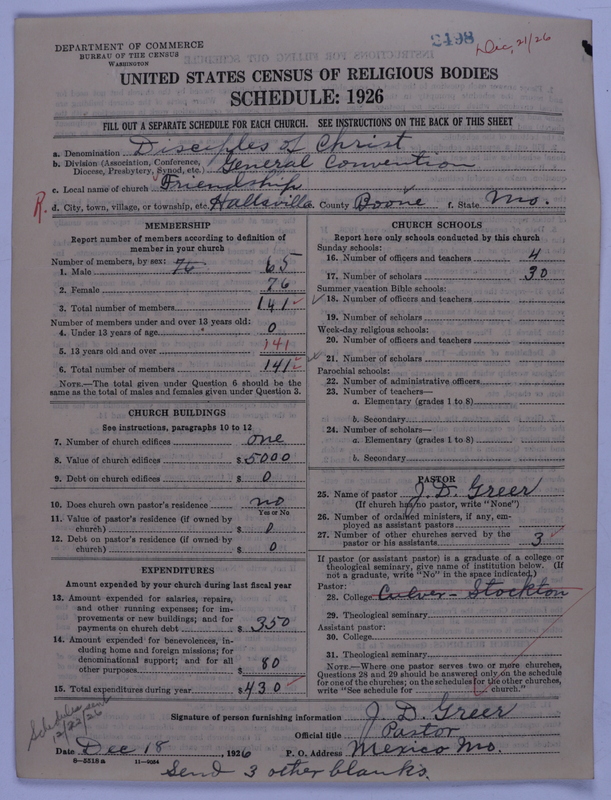 2498
Dec, 21/26
DEPARTMENT OF COMMERCE
BUREAU OF THE CENSUS
WASHINGTON
UNITED STATES CENSUS OF RELIGIOUS BODIES
SCHEDULE: 1926
FILL OUT A SEPARATE SCHEDULE FOR EACH CHURCH. SEE INSTRUCTIONS ON THE BACK OF THIS SHEET
a. Denomination Disciples of Christ
b. Division (Association, Conference, Diocese, Presbytery, Synod, etc.) General Convention
c. Local name of church Friendship
R. d. City, town, village, or township, etc. Hallsville e. County Boone f. State Mo.
MEMBERSHIP
Report number of members according to definition of
member in your church
Number of members, by sex:
1. Male 76 65
2. Female 76
3. Total number of members 141
Number of members under and over 13 years old:
4. Under 13 years of age 0
5. 13 years old and over 141
6. Total number of members 141
NOTE.—The total given under Question 6 should be the
same as the total of males and females given under Question 3.
CHURCH BUILDINGS
See instructions, paragraphs 10 to 12
7. Number of church edifices one
8. Value of church edifices $5000
9. Debt on church edifices $ 0
10. Does church own pastor's residence no
Yes or No
11. Value of pastor's residence (if owned by
church) $ 0
12. Debt on pastor's residence (if owned by
church) $ 0
EXPENDITURES
Amount expended by your church during last fiscal year
13. Amount expended for salaries, repairs,
and other running expenses; for im-
provements or new buildings; and for
payments on church debt $ 350
14. Amount expended for benevolences, in-
cluding home and foreign missions; for
denominational support; and for all
other purposes $ 80
15. Total expenditures during year $430
CHURCH SCHOOLS
Report here only schools conducted by this church
Sunday schools:
16. Number of officers and teachers 4
17. Number of scholars 30
Summer vacation Bible schools:
18. Number of officers and teachers
19. Number of scholars
Week-day religious schools:
20. Number of officers and teachers
21. Number of scholars
Parochial schools:
22. Number of administrative officers
23. Number of teachers—
a. Elementary (grades 1 to 8)
b. Secondary
24. Number of scholars—
a. Elementary (grades 1 to 8)
b. Secondary
PASTOR
25. Name of pastor J. D. Greer
(If church has no pastor, write "None")
26. Number of ordained ministers, if any, em-
ployed as assistant pastors
27. Number of other churches served by the
pastor or his assistants 3
If pastor (or assistant pastor) is a graduate of a college or
theological seminary, give name of institution below. (If
not a graduate, write "No" in the space indicated.)
Pastor:
28. College Culver-Stockton
29. Theological seminary
Assistant pastor:
30. College
31. Theological seminary
NOTE.—Where one pastor serves two or more churches,
Questions 28 and 29 should be answered only on the schedule
for one of the churches; on the schedules for the other churches,
write "See schedule for church."
Schedules sent
12/22/26
Signature of person furnishing information J. D. Greer
Official title Pastor
Date Dec 18, 1926 P. O. Address Mexico Mo.
8—5518 a 11—9054
Send 3 other blanks.